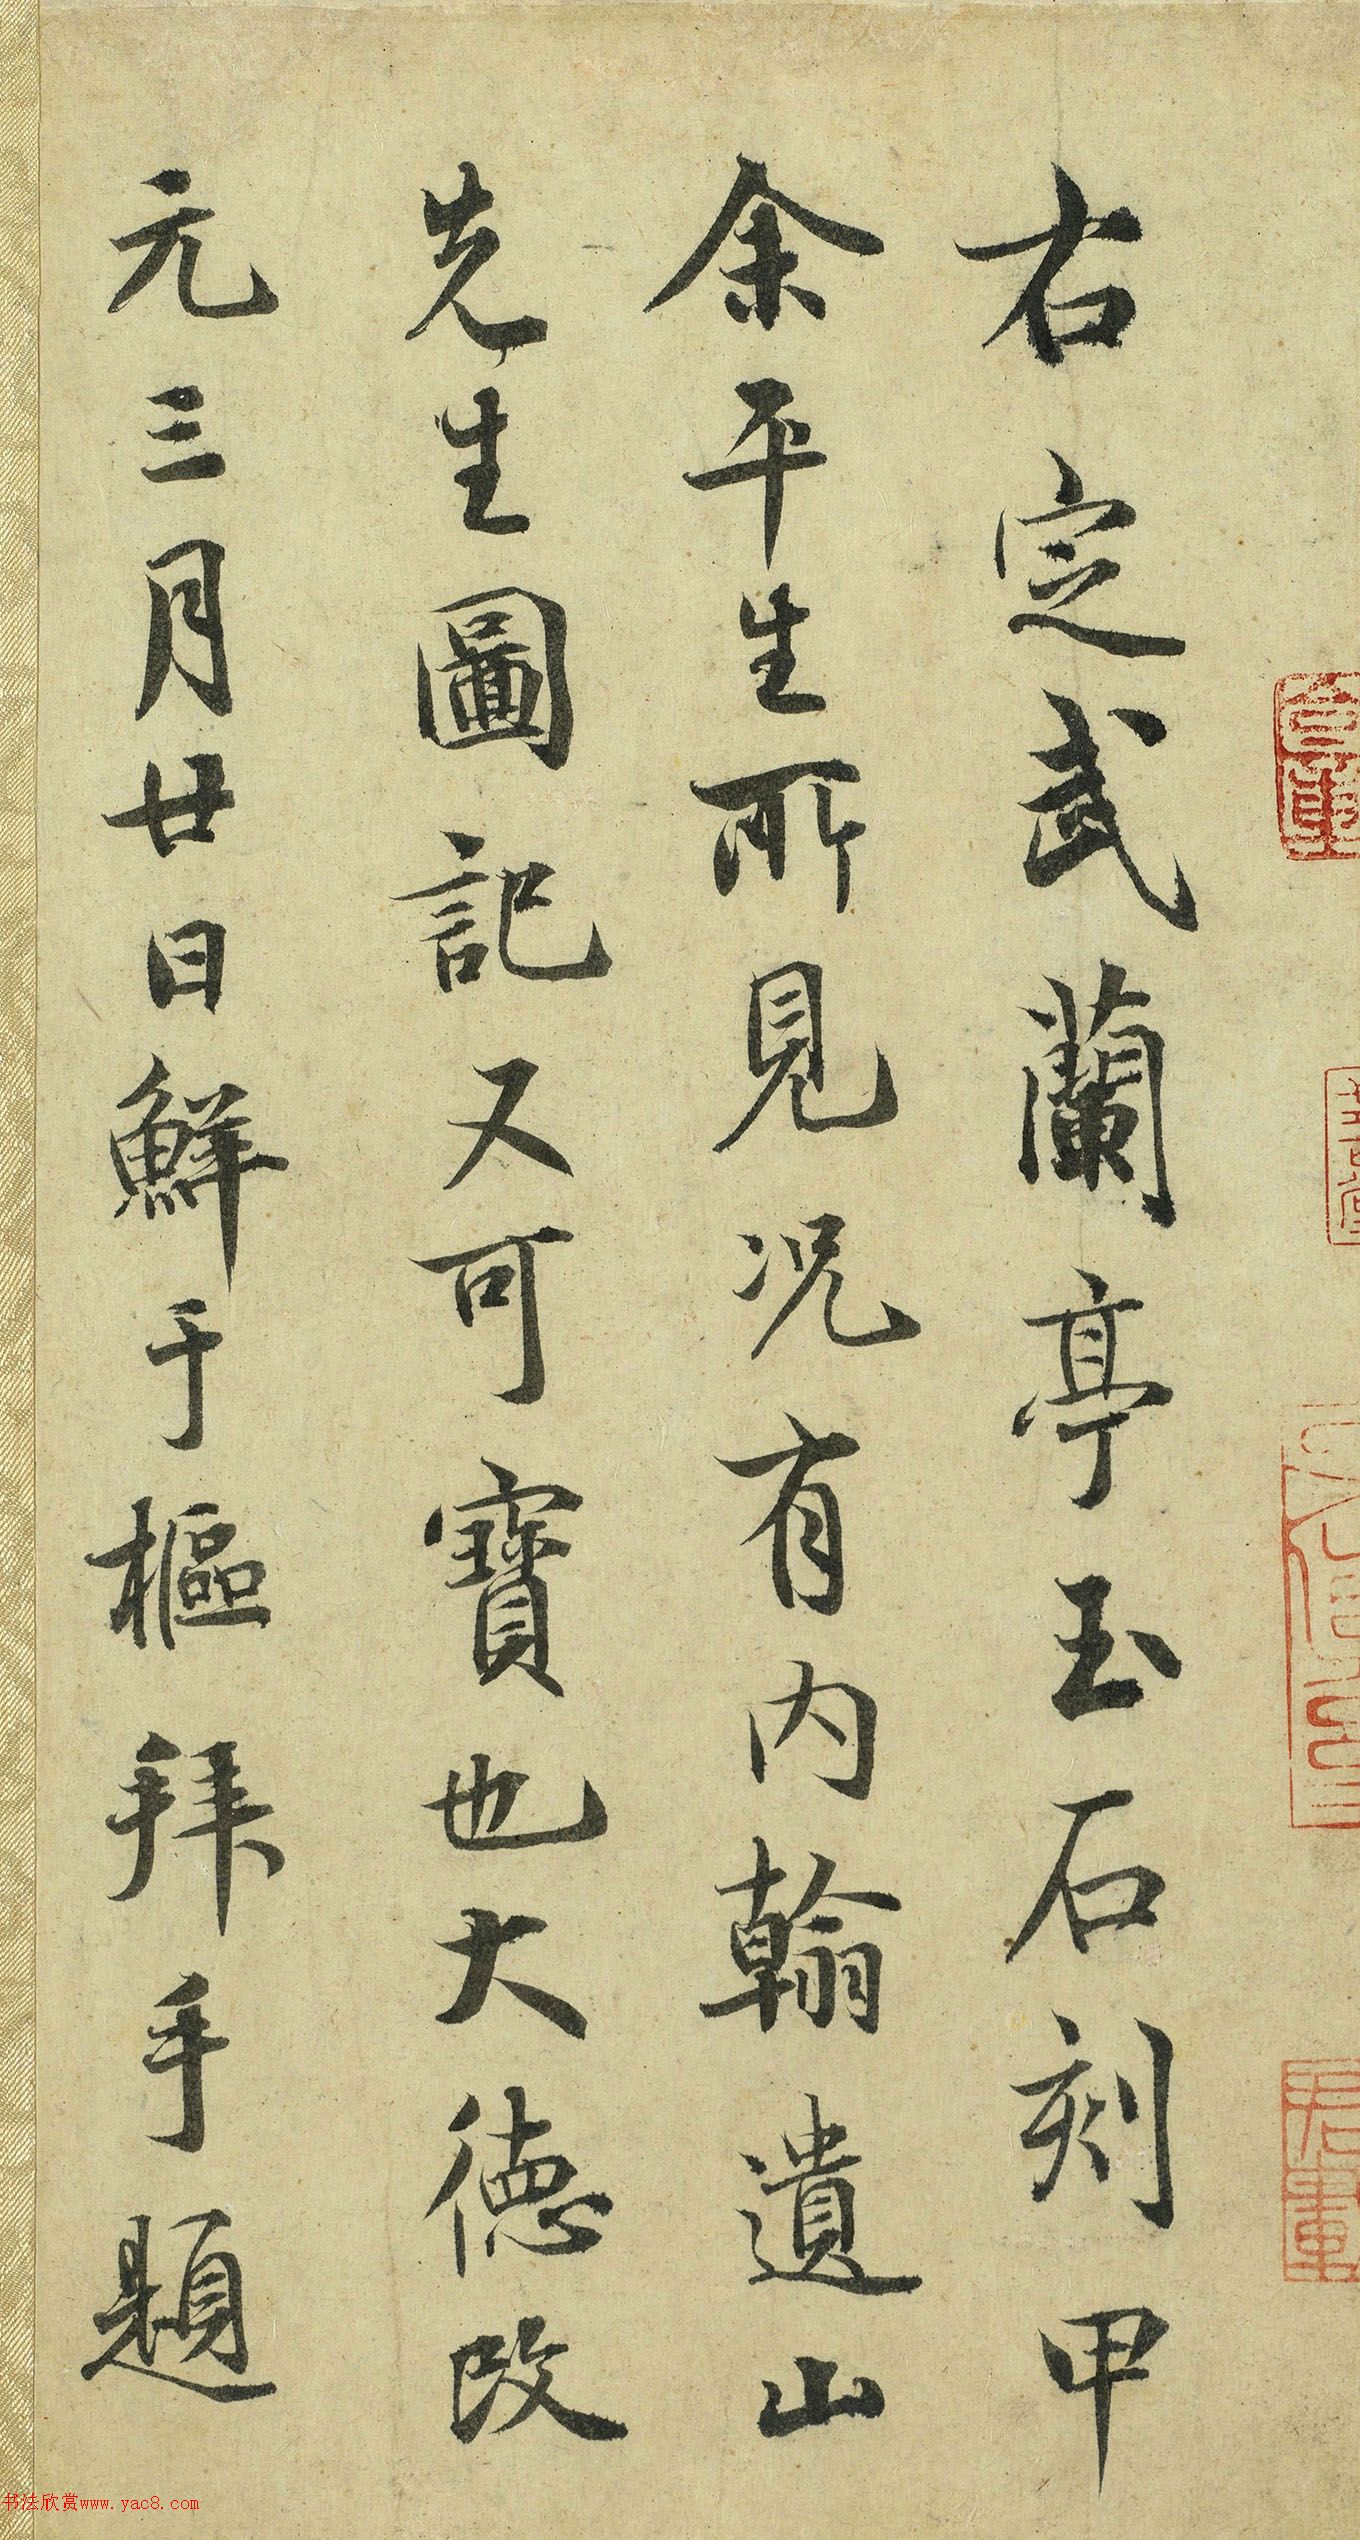 右定武蘭亭玉石刻甲
余平生所見况有内翰遺山
先生圖記又可寶也大德改
元三月廿日鮮于樞拜手題
书法欣赏www.yac8.com